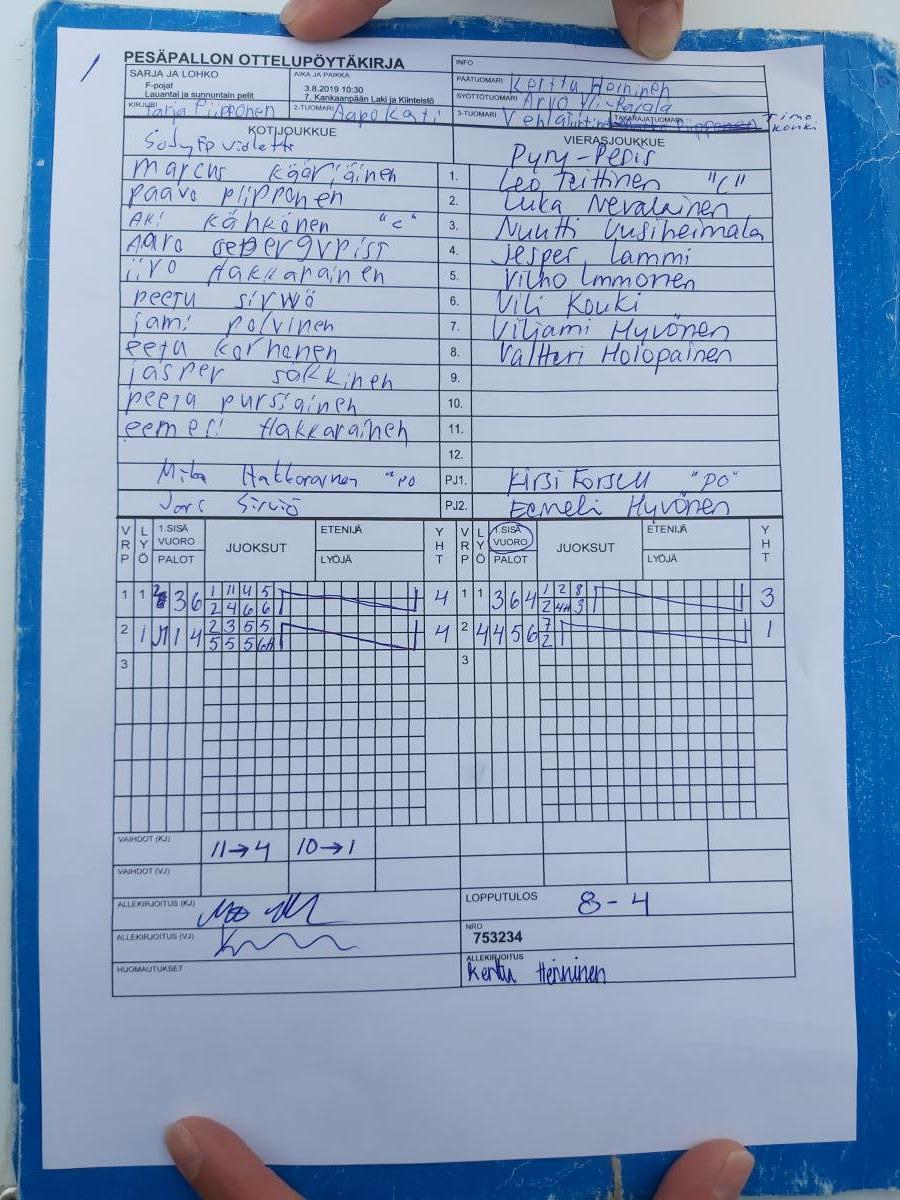 PESÄPALLON OTTELUPÖYTÄKIRJA
INFO
SARJA JA LOHKO
F-pojat
Lauantai ja sunnuntain pelit
AIKA JA PAIKKA
3.8.2019 10:30
7, Kankaanpään Laki ja Kiinteistö
PÄÄTUOMARI Kerttu Heininen
SYÖTTÖTUOMARI Arvo
KIRJURI Tarja Piipponen
2-TUOMARI Aapo
3-TUOMARI
TAKARAJATUOMARI Timo Kouki
KOTIJOUKKUE
VIERASJOUKKUE
Pyry-Pesis
marcus kääriäinen 1. Leo Teittinen "C"
paavo piipponen 2. Luka Nevalainen
AKi kähkönen "c" 3. Nuutti Uusiheimala
AAro 4. Jesper Lammi
iivo Hakkarainen 5. Vilho Immonen
peetu sirviö 6. Vili Kouki
jami polvinen 7. Viljami Hyvönen
eetu korhonen 8. Valtteri Holopainen
jasper sakkinen 9.
peeta pursiainen 10.
eemeli Hakkarainen 11.
12.
Mika Hakkarainen "PO PJ1. Kirsi Forsell "PO"
Sirviö PJ2. Eemeli Hyvönen
VRP LYÖ 1.SISÄ VUORO PALOT JUOKSUT ETENIJÄ LYÖJÄ YHT VRP LYÖ 1.SISÄ VUORO PALOT JUOKSUT ETENIJÄ LYÖJÄ YHT
1 1 3 6 1 11 4 5 4 1 1 3 6 4 1 2 8 3
2 4 6 6 2 4H 3
2 1 11 1 4 2 3 5 5 4 2 4 4 5 6 7 1
5 5 5 6H 2
3 3
VAIHDOT (KJ) 11→4 10→1
VAIHDOT (VJ)
ALLEKIRJOITUS (KJ)
LOPPUTULOS 8-4
ALLEKIRJOITUS (VJ)
NRO
753234
HUOMAUTUKSET
ALLEKIRJOITUS
Kerttu Heininen